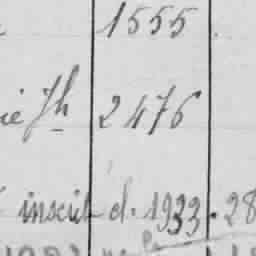 1555
ie Jh 2476
inscrit d. 1933. 28